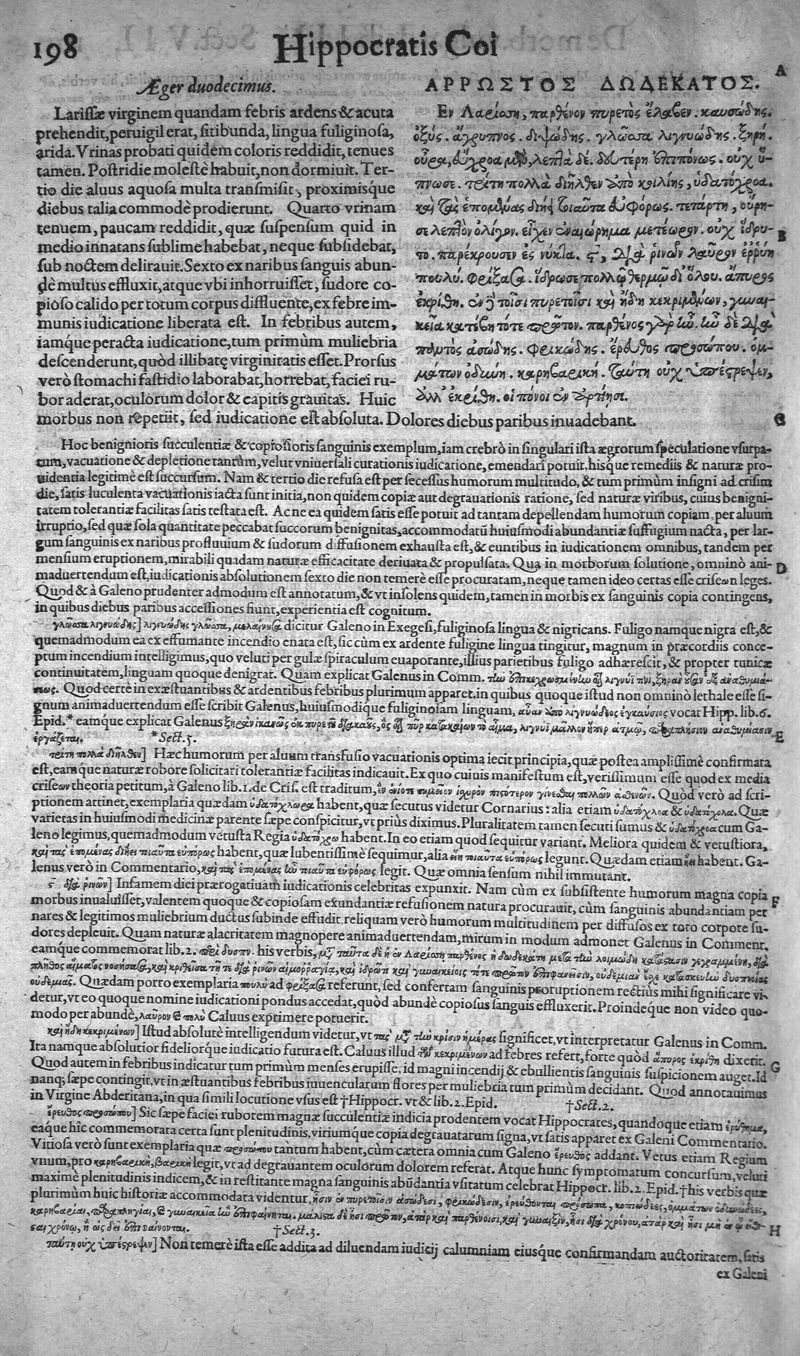 198 Hippocratis Coi
Æger duodecimus.
Larissæ virginem quandam febris ardens & acuta
prehendit, peruigil erat, sitibunda, lingua fuliginosa,
arida. Vrinas probati quidem coloris reddidit, tenues
tamen. Postridie molestè habuit, non dormiuit. Ter-
tio die aluus aquosa multa transmisit, proximisque
diebus talia commodè prodierunt. Quarto vrinam
tenuem, paucam reddidit, quæ suspensum quid in
medio innatans sublime habebat, neque subsidebat,
sub noctem delirauit. Sexto ex naribus sanguis abun-
dè multus effluxit, atque vbi inhorruisset, sudore co-
pioso calido per totum corpus diffluente, ex febre im-
munis iudicatione liberata est. In febribus autem,
iamque peracta iudicatione, tum primùm muliebria
descenderunt, quòd illibatę virginitatis esset. Prorsus
verò stomachi fastidio laborabat, horrebat, faciei ru-
bor aderat, oculorum dolor & capitis grauitas. Huic
morbus non repetiit, sed iudicatione est absoluta. Dolores diebus paribus inuadebant.
ΑΡΡΩΣΤΟΣ ΔΩΔΕΚΑΤΟΣ.
Εν Λαρίσῃ, παρθένον πυρετὸς ἔλαβεν. καυσώδης.
ὀξύς. ἄγρυπνος. διψώδης. γλῶσσα λιγνυώδης. ξηρή.
οὖρα, εὔχροα μὲν, λεπτὰ δέ. δευτέρῃ ἐπιπόνως. οὐχ ὕ-
πνωσε. τρίτῃ πολλὰ διῆλθεν ἀπὸ κοιλίης, ὑδατόχροα.
καὶ τὰς ἑπομένας διῄει τοιαῦτα εὐφόρως. τετάρτῃ, οὔρη-
σε λεπτὸν ὀλίγον. εἶχεν ἐναιώρημα μετέωρον. οὐχ ἱδρυ-
το. παρέκρουσεν ἐς νύκτα. ϛʹ, διὰ ῥινῶν λαῦρον ἐρρύη
πουλύ. φρίξασα. ἵδρωσε πολλῷ θερμῷ δι᾽ ὅλου. ἄπυρος
ἐκρίθη. ἐν δὲ τοῖσι πυρετοῖσι καὶ ἤδη κεκριμένων, γυναι-
κεῖα κατέβη τότε πρῶτον. παρθένος γὰρ ἦν. ἦν δὲ διὰ
παντὸς ἀσώδης. φρικώδης. ἔρευθος προσώπου. ὀμ-
μάτων ὀδύνη. καρηβαρική. ταύτῃ οὐχ ὑπέστρεψεν,
ἀλλ᾽ ἐκρίθη. οἱ πόνοι ἐν ἀρτίῃσι.
A
B
C
Hoc benignioris succulentiæ & copiosioris sanguinis exemplum, iam crebrò in singulari ista ægrorum speculatione vsurpa-
tum, vacuatione & depletione tantùm, velut vniuersali curationis iudicatione, emendari potuit, hisque remediis & naturæ pro-
uidentia legitimè est succursum. Nam & tertio die refusa est per secessus humorum multitudo, & tum primùm insigni ad crisim
die, satis luculenta vacuationis iacta sunt initia, non quidem copiæ aut degrauationis ratione, sed naturæ viribus, cuius benigni-
tatem tolerantiæ facilitas satis testata est. Ac ne ea quidem satis esse potuit ad tantam depellendam humorum copiam per aluum
irruptio, sed quæ sola quantitate peccabat succorum benignitas, accommodatũ huiusmodi abundantiæ suffugium nacta, per lar-
gum sanguinis ex naribus profluuium & sudorum diffusionem exhausta est, & euntibus in iudicationem omnibus, tandem per
mensium eruptionem, mirabili quadam naturæ efficacitate deriuata & propulsata. Qua in morborum solutione, omninò ani-
maduertendum est, iudicationis absolutionem sexto die non temerè esse procuratam, neque tamen ideo certas esse crisεων leges.
Quod & à Galeno prudenter admodum est annotatum, & vt insolens quidem, tamen in morbis ex sanguinis copia contingens,
in quibus diebus paribus accessiones fiunt, experientia est cognitum.
D
γλῶσσα λιγνυώδης] λιγνυώδης γλῶσσα, μελαίνουσα dicitur Galeno in Exegesi, fuliginosa lingua & nigricans. Fuligo namque nigra est, &
quemadmodum ea ex effumante incendio enata est, sic cùm ex ardente fuligine lingua tingitur, magnum in præcordiis conce-
ptum incendium intelligimus, quo veluti per gulæ spiraculum euaporante, illius parietibus fuligo adhærescit, & propter tunicæ
continuitatem, linguam quoque denigrat. Quam explicat Galenus in Comm.
Quod certè in exæstuantibus & ardentibus febribus plurimum apparet, in quibus quoque istud non omninò lethale esse si-
gnum animaduertendum esse scribit Galenus, huiusmodique fuliginosam linguam, vocat Hipp. lib. 6.
Epid.* eamque explicat Galenus
ἐργάζεται. *Sect. 5.
E
τρίτῃ πολλὰ διῆλθεν] Hæc humorum per aluum transfusio vacuationis optima iecit principia, quæ postea amplissimè confirmata
est, eamque naturæ robore solicitari tolerantiæ facilitas indicauit. Ex quo cuiuis manifestum est, verissimum esse quod ex media
crisεων theoria petitum, à Galeno lib. 1. de Cris. est traditum, Quòd verò ad scri-
ptionem attinet, exemplaria quædam ὑδατόχλωρα habent, quæ secutus videtur Cornarius: alia etiam ὑδατόχλοα & ὑδατόχολα. Quæ
varietas in huiusmodi medicinæ parente sæpe conspicitur, vt prius diximus. Pluralitatem tamen secuti sumus & ὑδατόχροα cum Ga-
leno legimus, quemadmodum vetusta Regia habent. In eo etiam quod sequitur variant. Meliora quidem & vetustiora,
καὶ τὰς ἑπομένας διῄει τοιαῦτα εὐπόρως habent, quæ lubentissimè sequimur, alia legunt. Quædam etiam habent. Ga-
lenus verò in Commentario, legit. Quæ omnia sensum nihil immutant.
ϛ διὰ ῥινῶν] Infamem diei prærogatiuam iudicationis celebritas expunxit. Nam cùm ex subsistente humorum magna copia
morbus inualuisset, valentem quoque & copiosam exundantiæ refusionem natura procurauit, cùm sanguinis abundantiam per
nares & legitimos muliebrium ductus subinde effudit, reliquam verò humorum multitudinem per diffusos ex toto corpore su-
dores depleuit. Quam naturæ alacritatem magnopere animaduertendam, mirum in modum admonet Galenus in Comment.
F
eamque commemorat lib. 2. περὶ δυσπν. his verbis,
οὐδεμιᾶς. Quædam porro exemplaria πουλὺ ad φρίξασα referunt, sed confertam sanguinis proruptionem rectius mihi significare vi-
detur, vt eo quoque nomine iudicationi pondus accedat, quòd abundè copiosus sanguis effluxerit. Proindeque non video quo-
modo per abundè, λαῦρον & πολὺ Caluus exprimere potuerit.
καὶ ἤδη κεκριμένων] Istud absolutè intelligendum videtur, vt significet, vt interpretatur Galenus in Comm.
Ita namque absolutior fideliorque iudicatio futura est. Caluus illud κεκριμένων ad febres refert, fortè quòd ἄπυρος ἐκρίθη dixerit.
Quod autem in febribus indicatur tum primùm menses erupisse, id magni incendij & ebullientis sanguinis suspicionem auget. Id
nanque sæpe contingit, vt in æstuantibus febribus iuuencularum flores per muliebria tum primùm decidant. Quod annotauimus
in Virgine Abderitana, in qua simili locutione vsus est †Hippocr. vt & lib. 2. Epid. †Sect. 2.
G
ἔρευθος προσώπου] Sic sæpe faciei ruborem magnæ succulentiæ indicia prodentem vocat Hippocrates, quandoque etiam ἐρύθημα,
eaque hîc commemorata certa sunt plenitudinis, viriumque copia degrauatarum signa, vt satis apparet ex Galeni Commentario.
Vitiosa verò sunt exemplaria quæ προσώπου tantum habent, cùm cætera omnia cum Galeno ἔρευθος addant. Vetus etiam Regium
vnum, pro καρηβαρική, βαρική legit, vt ad degrauantem oculorum dolorem referat. Atque hunc symptomatum concursum, veluti
maximè plenitudinis indicem, & in restitante magna sanguinis abũdantia vsitatum celebrat Hippocr. lib. 2. Epid. † his verbis quæ
plurimùm huic historiæ accommodata videntur,
†Sect. 3.
H
ταύτῃ οὐχ ὑπέστρεψεν] Non temerè ista esse addita ad diluendam iudicij calumniam eiusque confirmandam auctoritatem, satis
ex Galeni